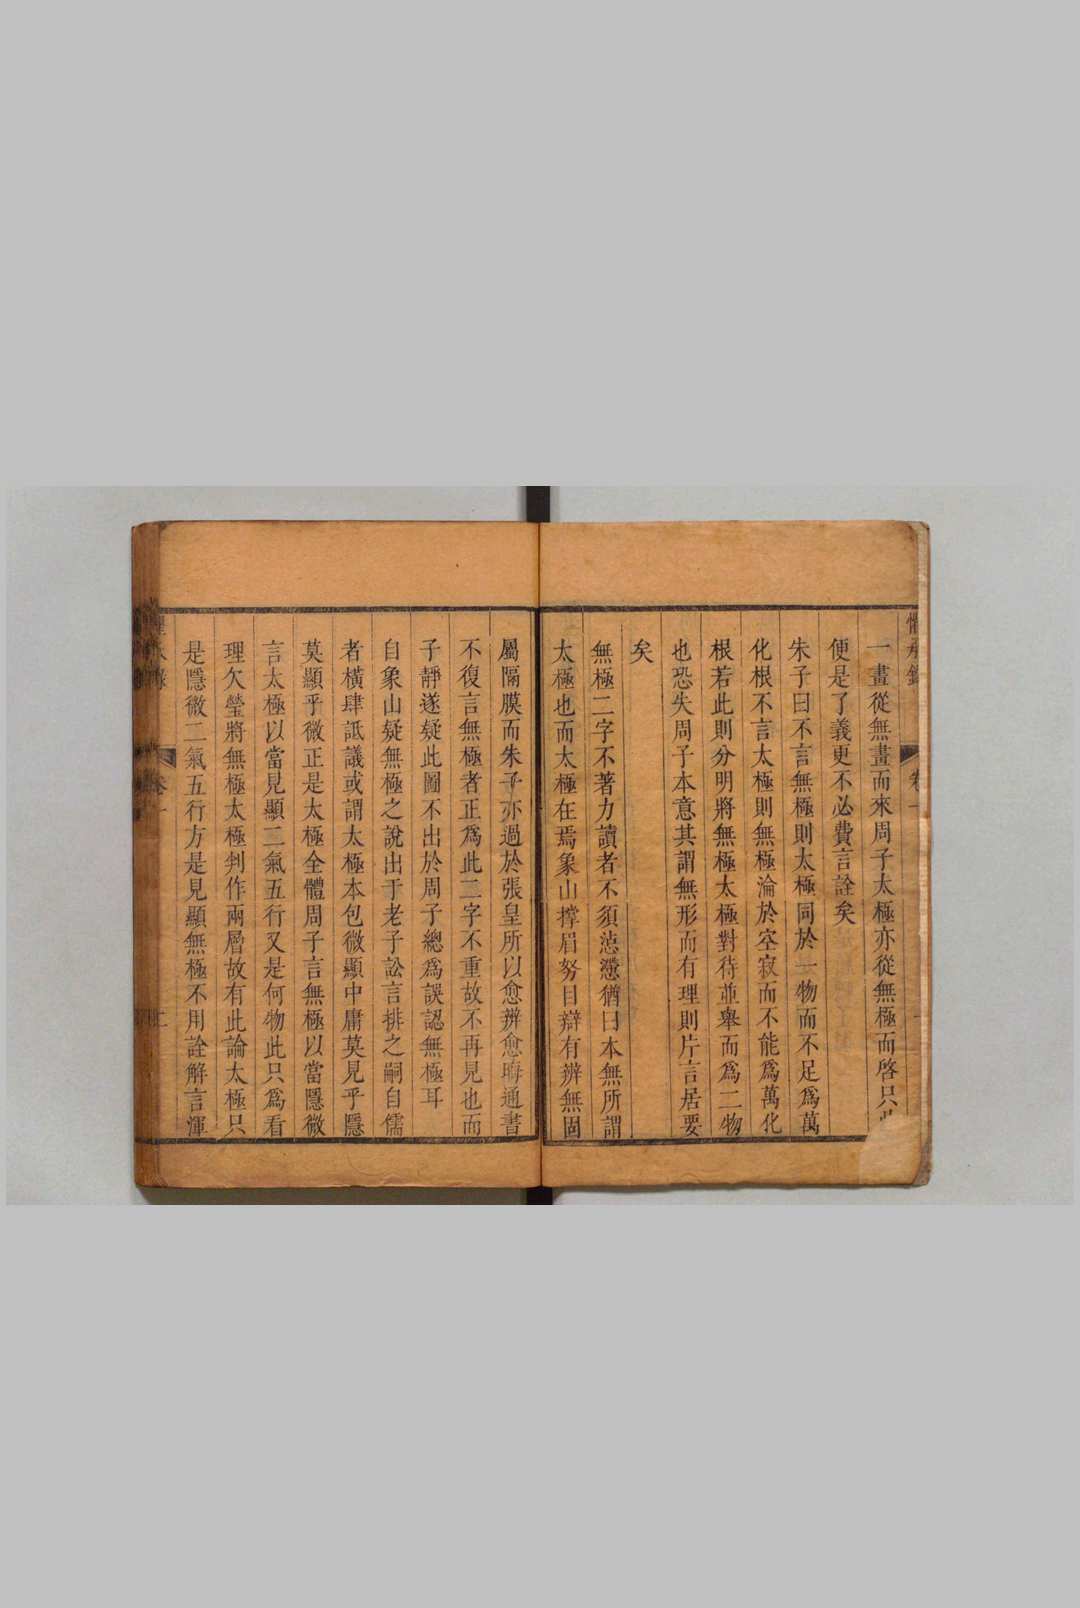 一畫從無畫而來周子太極亦從無極而啓只此
便是了義更不必費言詮矣
朱子曰不言無極則太極同於一物而不足爲萬
化根不言太極則無極淪於空寂而不能爲萬化
根若此則分明將無極太極對待並舉而爲二物
也恐失周子本意其謂無形而有理則片言居要
矣
無極二字不著力讀者不須慫慂猶曰本無所謂
太極也而太極在焉象山撑眉努目辯有辨無固
屬隔膜而朱子亦過於張皇所以愈辨愈晦通書
不復言無極者正爲此二字不重故不再見也而
子靜遂疑此圖不出於周子總爲誤認無極耳
自象山疑無極之說出于老子訟言排之嗣自儒
者橫肆詆議或謂太極本包微顯中庸莫見乎隱
莫顯乎微正是太極全體周子言無極以當隱微
言太極以當見顯二氣五行又是何物此只爲看
理欠瑩將無極太極判作兩層故有此論太極只
是隱微二氣五行方是見顯無極不用詮解言渾
卷一